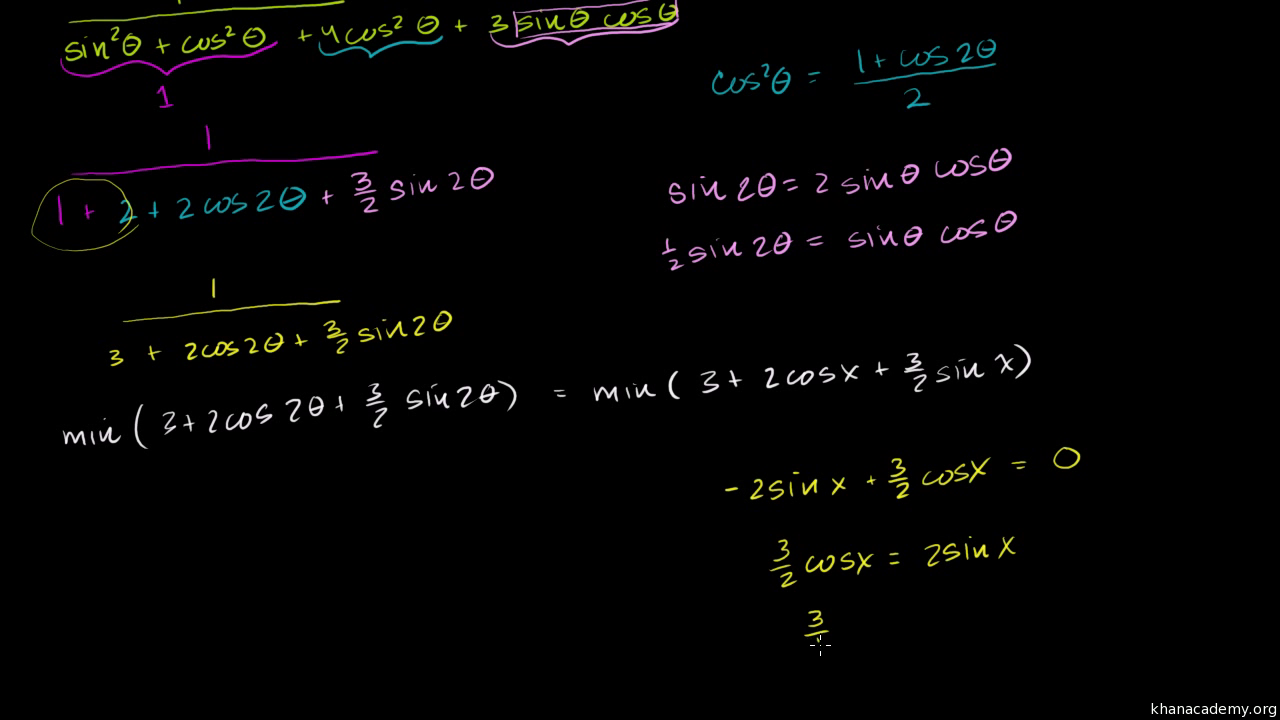 1
sin²θ + cos²θ + 4cos²θ + 3 sinθ cosθ
1
cos²θ = (1 + cos 2θ)/2
1
1 + 2 + 2 cos 2θ + 3/2 sin 2θ
sin 2θ = 2 sinθ cosθ
1/2 sin 2θ = sinθ cosθ
1
3 + 2cos2θ + 3/2 sin2θ
min( 3+2cos 2θ + 3/2 sin 2θ) = min( 3+ 2cosx + 3/2 sin x)
-2sin x + 3/2 cosx = 0
3/2 cosx = 2sin x
3
khanacademy.org